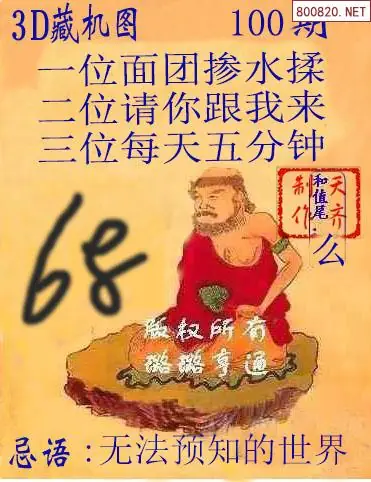 800820.NET
3D藏机图 100期
一位面团掺水揉
二位请你跟我来
三位每天五分钟
天齐
制作
和值尾:么
68
版权所有
璐璐亨通
忌语:无法预知的世界